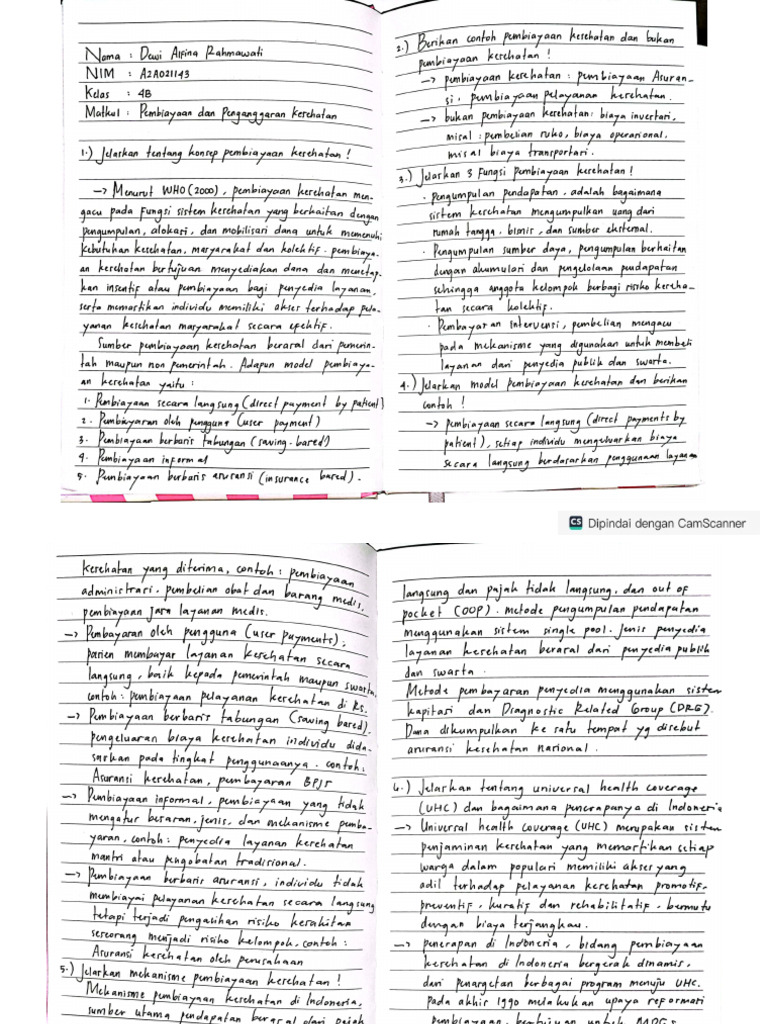 Nama : Dewi Alfina Rahmawati
NIM : A2A021143
Kelas : 4B
Matkul : Pembiayaan dan Penganggaran Kesehatan
1.) Jelaskan tentang konsep pembiayaan kesehatan !
→ Menurut WHO (2000), pembiayaan kesehatan men-
gacu pada fungsi sistem kesehatan yang berkaitan dengan
pengumpulan, alokasi, dan mobilisasi dana untuk memenuhi
kebutuhan kesehatan, masyarakat dan kolektif. pembiaya-
an kesehatan bertujuan menyediakan dana dan menetap-
kan insentif atau pembiayaan bagi penyedia layanan,
serta memastikan individu memiliki akses terhadap pela-
yanan kesehatan masyarakat secara efektif.
Sumber pembiayaan kesehatan berasal dari pemerin-
tah maupun non pemerintah. Adapun model pembiaya-
an kesehatan yaitu :
1. Pembiayaan secara langsung (direct payment by patient)
2. Pembiayaran oleh pengguna (user payment)
3. Pembiayaan berbasis tabungan (saving-based)
4. Pembiayaan informal
5. Pembiayaan berbasis asuransi (insurance based).
2.) Berikan contoh pembiayaan kesehatan dan bukan
pembiayaan kesehatan !
→ pembiayaan kesehatan : pembiayaan Asuran-
si, pembiayaan pelayanan kesehatan.
→ bukan pembiayaan kesehatan : biaya investasi,
misal : pembelian ruko, biaya operasional,
misal biaya transportasi.
3.) Jelaskan 3 Fungsi pembiayaan kesehatan !
· Pengumpulan pendapatan, adalah bagaimana
sistem kesehatan mengumpulkan uang dari
rumah tangga, bisnis, dan sumber eksternal.
· Pengumpulan sumber daya, pengumpulan berkaitan
dengan akumulasi dan pengelolaan pendapatan
sehingga anggota kelompok berbagi risiko keseha-
tan secara kolektif.
· Pembayaran Intervensi, pembelian mengacu
pada mekanisme yang digunakan untuk membeli
layanan dari penyedia publik dan swasta.
4.) Jelaskan model pembiayaan kesehatan dan berikan
contoh !
→ pembiayaan secara langsung (direct payments by
patient), setiap individu mengeluarkan biaya
secara langsung berdasarkan penggunaan layanan
CS Dipindai dengan CamScanner
kesehatan yang diterima, contoh : pembiayaan
administrasi, pembelian obat dan barang medis,
pembiayaan jasa layanan medis.
→ Pembayaran oleh pengguna (user payments);
pasien membayar layanan kesehatan secara
langsung, baik kepada pemerintah maupun swasta,
contoh : pembiayaan pelayanan kesehatan di RS.
→ Pembiayaan berbasis tabungan (sawing based),
pengeluaran biaya kesehatan individu dida-
sarkan pada tingkat penggunaanya. contoh:
Asuransi kesehatan, pembayaran BPJS
→ Pembiayaan informal, pembiayaan yang tidak
mengatur besaran, jenis, dan mekanisme pemba-
yaran, contoh : penyedia layanan kesehatan
mantri atau pengobatan tradisional.
→ Pembiayaan berbasis asuransi, individu tidak
membiayai pelayanan kesehatan secara langsung
tetapi terjadi pengalihan risiko kesakitan
seseorang menjadi risiko kelompok, contoh :
Asuransi kesehatan oleh perusahaan
5.) Jelaskan mekanisme pembiayaan kesehatan !
Mekanisme pembiayaan kesehatan di Indonesia,
sumber utama pendapatan berasal dari pajak
langsung dan pajak tidak langsung, dan out of
pocket (OOP). metode pengumpulan pendapatan
menggunakan sistem single pool. Jenis penyedia
layanan kesehatan berasal dari penyedia publik
dan swasta.
Metode pembayaran penyedia menggunakan sistem
kapitasi dan Diagnostic Related Group (DRG).
Dana dikumpulkan ke satu tempat yg disebut
asuransi kesehatan nasional.
6.) Jelaskan tentang universal health coverage
(UHC) dan bagaimana penerapanya di Indonesia
→ Universal health coverage (UHC) merupakan sistem
penjaminan kesehatan yang memastikan setiap
warga dalam populasi memiliki akses yang
adil terhadap pelayanan kesehatan promotif,
preventif, kuratif dan rehabilitatif, bermutu
dengan biaya terjangkau.
→ penerapan di Indonesia, bidang pembiayaan
kesehatan di Indonesia bergerak dinamis,
dari penargetan berbagai program menuju UHC.
Pada akhir 1990 melakukan upaya reformasi
pembiayaan, bertujuan untuk MDGs